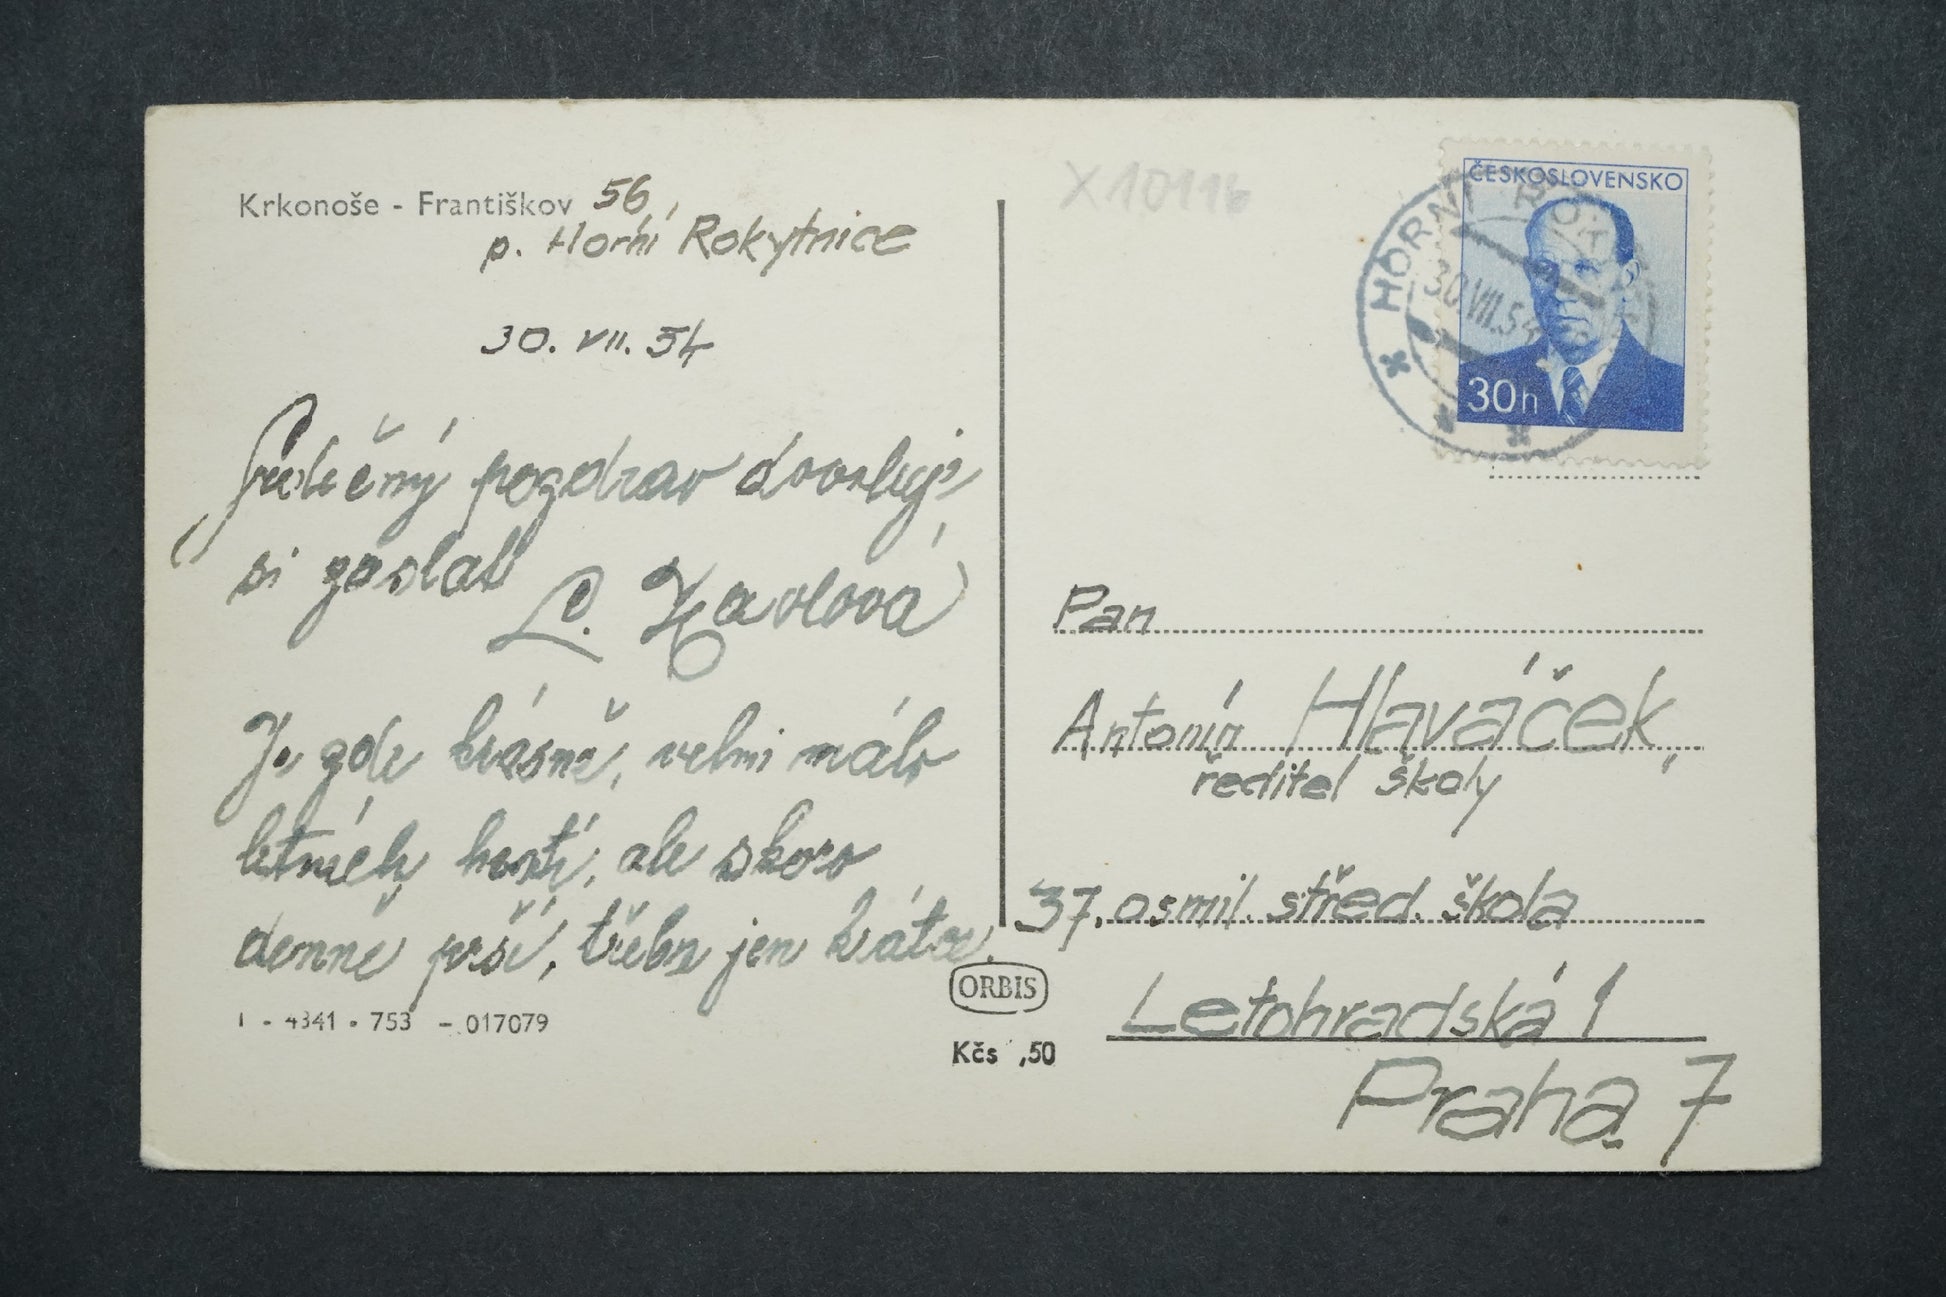 Krkonoše - Františkov 56,
p. Horní Rokytnice
30. VII. 54
Srdečný pozdrav dovoluji
si zaslat
L. Havlová
Je zde krásně, velmi málo
letních hostí, ale skoro
denně prší, třeba jen krátce.
1 - 4341 - 753 - 017079
ORBIS
Kčs ,50
X10116
ČESKOSLOVENSKO
30h
HORNÍ RO
30.VII.54
Pan
Antonín Hlaváček,
ředitel školy
37. osmil. střed. škola
Letohradská 1
Praha 7